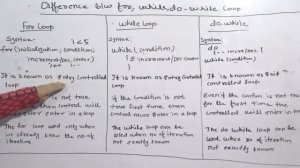 Difference b/w for, while, do-while loop
For Loop
while loop
do-while
Syntax:
for (initialization; condition;
increment/dec
It is known as Entry Controlled
loop
not true
than control will
never enter in a loop
The for loop used only when
we already know the no of
iteration
Syntax:
while (condition)
{ increment/dec }
It is known as Entry Controlled
loop
If the condition is not
true first time than
control never Enter in a loop
The while loop also be
used when no of iteration
not exactly known
Syntax:
do
increment/dec
while (condition)
It is known as Exit
controlled
Even if the condition is not true
for the first time the
control will Enter in a loop
The do while loop can be
used when no of iteration
not exactly known